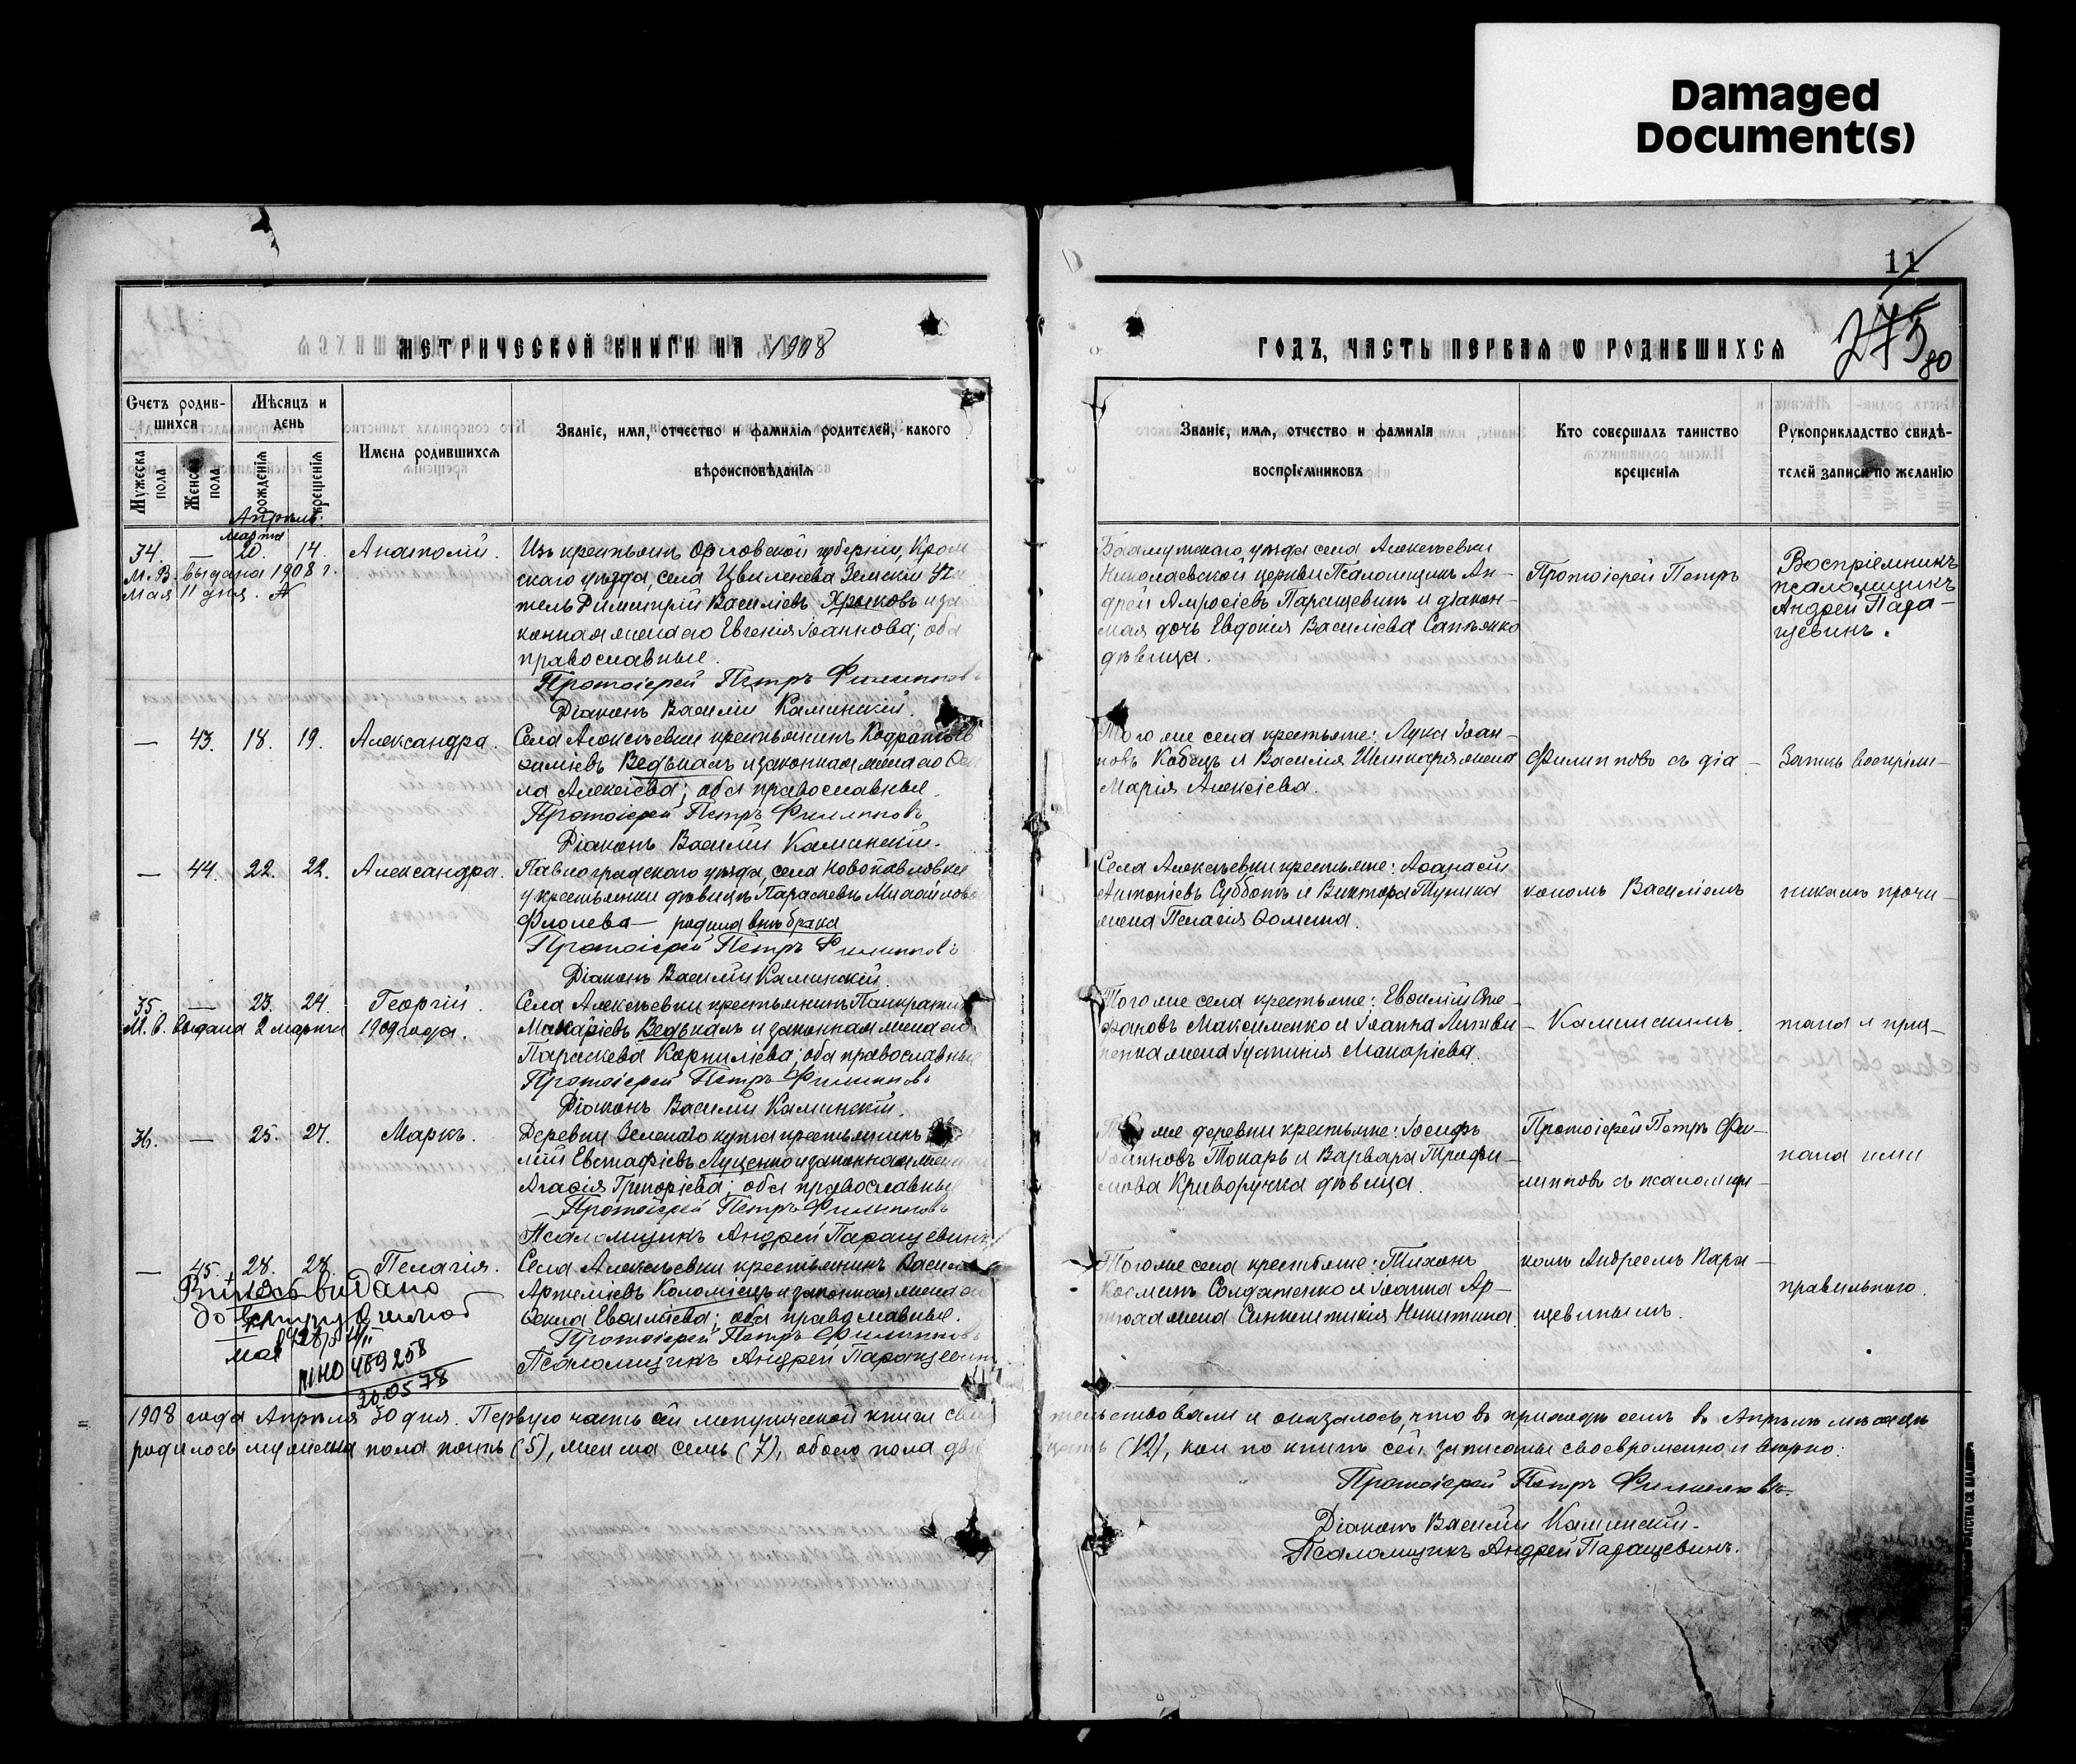 Damaged
Document(s)
11
275
80
МЕТРИЧЕСКОЙ КНИГИ НА 1908
ГОДЪ, ЧАСТЬ ПЕРВАЯ О РОДИВШИХСЯ
Счетъ родив-
шихся
Мѣсяцъ и
день
Мужеска
пола
Женска
пола
рожденія
крещенія
Имена родившихся
Званіе, имя, отчество и фамилія родителей, какого
вѣроисповѣданія
Званіе, имя, отчество и фамилія
воспріемниковъ
Кто совершалъ таинство
крещенія
Рукоприкладство свидѣ-
телей записи по желанію
Апрѣль.
марта
34. — 20. 14. Анатолій.
М.В. выдана 1908 г.
Мая 11 дня.
Изъ крестьянъ Орловской губерніи, Кром
скаго уѣзда, села Цвиленева Земскій Уч
тель Димитрій Василіевъ Хрыковъ и за
конная жена его Евгенія Іоаннова; оба
православные.
Протоіерей Петръ Филипповъ
Діаконъ Василій Каминскій.
Бахмутскаго уѣзда села Алексѣевки
Николаевской церкви Псаломщикъ Ан-
дрей Амвросіевъ Паращевинъ и діакон-
ская дочь Евдокія Василіева Сапѣжко
дѣвица.
Протоіерей Петръ
Воспріемникъ
псаломщикъ
Андрей Пара-
щевинъ.
— 43. 18. 19. Александра.
Села Алексѣевки крестьянинъ Кодратъ Ев
симіевъ Ведькалъ и законная жена его
ла Алексіева; оба православные.
Протоіерей Петръ Филипповъ
Діаконъ Василій Каминскій.
Того же села крестьяне: Лука Іоан-
новъ Кобецъ и Василія Шинкаря жена
Марія Алексіева.
Филипповъ съ діа-
Запись воспріем-
— 44. 22. 22. Александра.
Павлоградскаго уѣзда, села Новопавловки
у крестьянки дѣвицы Параскевы Михайловой
родила внѣ брака
Протоіерей Петръ Филипповъ
Діаконъ Василій Каминскій.
Села Алексѣевки крестьяне: Аѳанасій
Антоніевъ Субботъ и Виктора Тупика
жена Пелагія Ѳомина.
кономъ Василіемъ
никамъ прочи-
35 — 23. 24. Георгій.
М. В. выдана 2 марта 1909 года.
Села Алексѣевки крестьянинъ Панкратій
Макаріевъ Ведькалъ и законная жена его
Параскева Корниліева; оба православные
Протоіерей Петръ Филипповъ
Діаконъ Василій Каминскій.
Того же села крестьяне: Евѳимій Сте-
фановъ Максименко и Іоанна Литви-
ненка жена Іустинія Макаріева.
Каминскимъ.
тана и при-
36. — 25. 27. Маркъ.
Деревни Зеленаго кута крестьянинъ
лій Евстафіевъ Луценко и законная жена
Агафія Григоріева; оба православные
Протоіерей Петръ Филипповъ
Псаломщикъ Андрей Паращевинъ
же деревни крестьяне: Іосифъ
Іоанновъ Токарь и Варвара Трофи-
мова Криворучка дѣвица.
Протоіерей Петръ Фи-
липповъ съ псаломщи-
нана ими
— 45. 28. 28. Пелагія.
видано
МНО 469258
20.05 78
Села Алексѣевки крестьянинъ Василій
Артеміевъ Коломіецъ и законная жена его
Евѳиміева; оба православные.
Протоіерей Петръ Филипповъ
Псаломщикъ Андрей Паращевинъ
Того же села крестьяне: Тихонъ
Космінъ Солдатенко и Іоанна Ар-
жена Синклитикія Никитина.
комъ Андреемъ Пара-
щевинымъ.
правильного.
1908 года Апрѣля 30 дня. Первую часть сей метрической книги сви
тельствовали и оказалось, что въ приходѣ семъ въ Апрѣлѣ мѣсяцѣ
родилось мужеска пола пять (5), женска семь (7), обоего пола две
цать (12), кои по книгѣ сей записаны своевременно и вѣрно:
Протоіерей Петръ Филипповъ.
Діаконъ Василій Каминскій.
Псаломщикъ Андрей Паращевинъ.